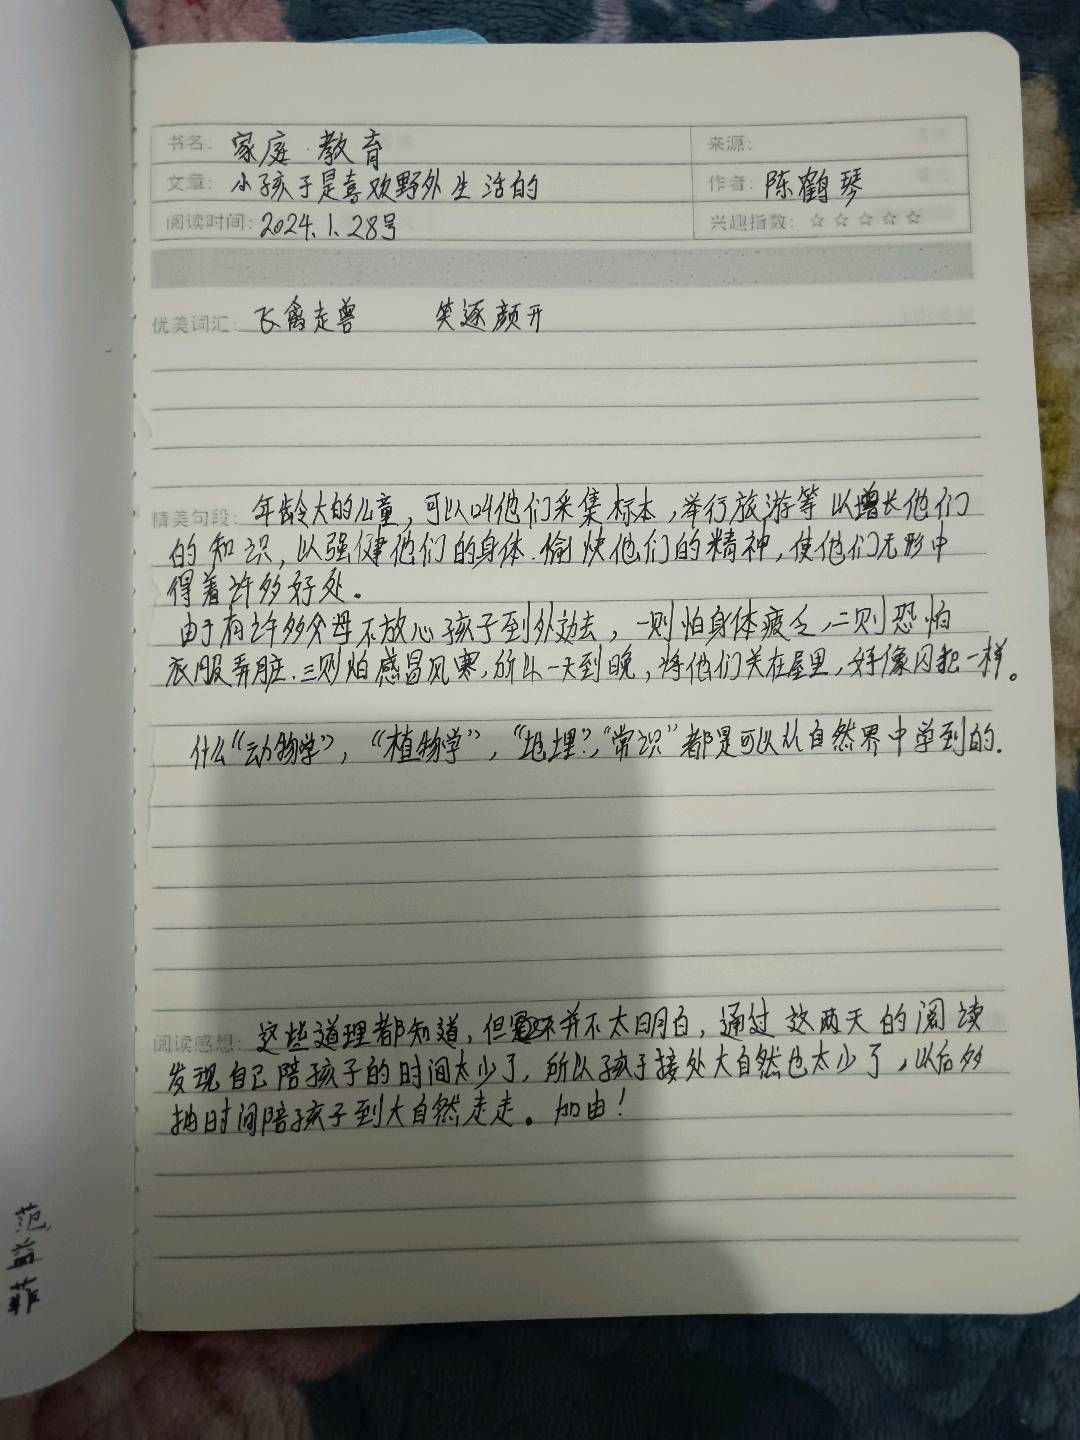 书名: 家庭·教育 来源:
文章: 小孩子是喜欢野外生活的 作者: 陈鹤琴
阅读时间: 2024.1.28号 兴趣指数: ☆☆☆☆☆
优美词汇: 飞禽走兽 笑逐颜开
精美句段: 年龄大的儿童,可以叫他们采集标本,举行旅游等以增长他们
的知识,以强健他们的身体.愉快他们的精神,使他们无形中
得着许多好处。
由于有许多父母不放心孩子到外边去,一则怕身体疲乏,二则恐怕
衣服弄脏.三则怕感冒风寒,所以一天到晚,将他们关在屋里,好像囚犯一样。
什么“动物学”,“植物学”,“地理”,“常识”都是可以从自然界中学到的.
阅读感想: 这些道理都知道,但并不太明白,通过这两天的阅读
发现自己陪孩子的时间太少了,所以孩子接处大自然也太少了,以后多
抽时间陪孩子到大自然走走。加由!
范
益
菲